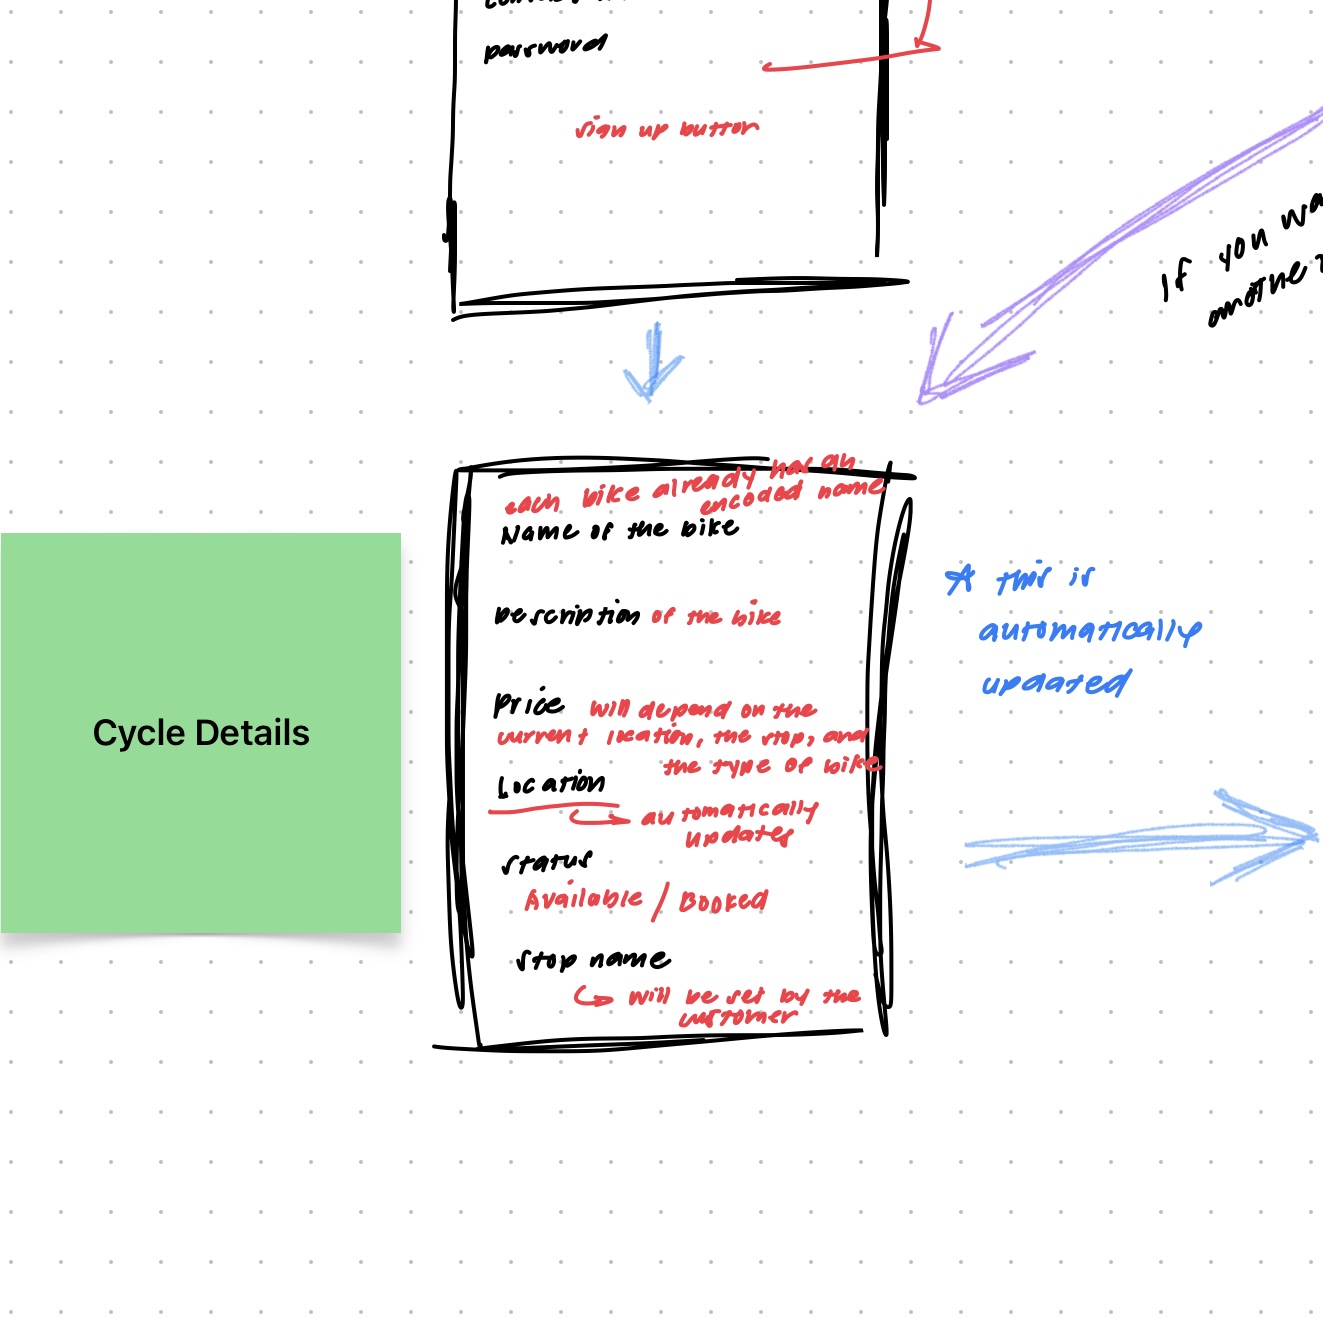 password
sign up button
If you
each bike already has an
encoded name
Name of the bike
Description of the bike
Price will depend on the
current location, the stop, and
the type of bike
Location
automatically
updates
status
Available / Booked
stop name
will be set by the
customer
Cycle Details
this is
automatically
updated